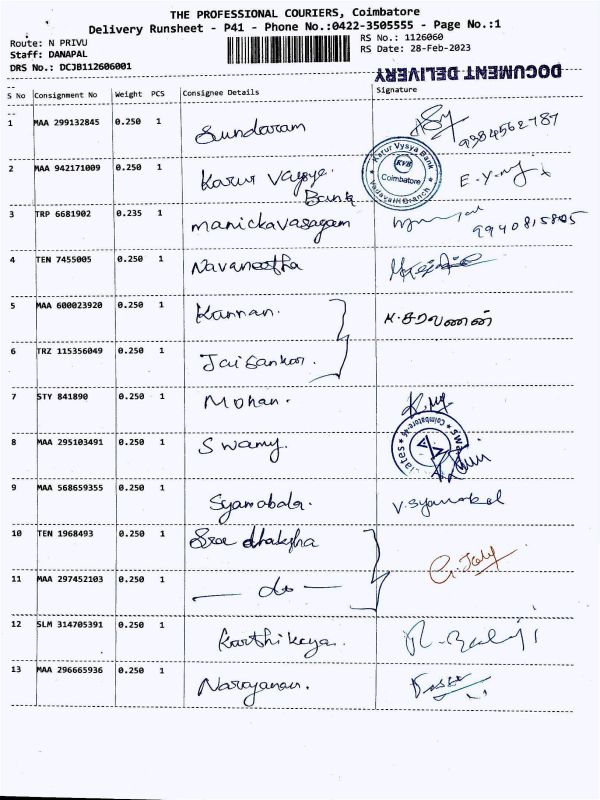 THE PROFESSIONAL COURIERS, Coimbatore
Delivery Runsheet - P41 - Phone No.:0422-3505555 - Page No.:1
Route: N PRIVU
RS No.: 1126060
Staff: DANAPAL
RS Date: 28-Feb-2023
DRS No.: DCJB112606001
DOCUMENT DELIVERY
S No Consignment No Weight PCS Consignee Details Signature
1 MAA 299132845 0.250 1 Sundaram 9984562787
2 MAA 942171009 0.250 1 Karur Vaysya Bank
Karur Vysya Bank KVB Coimbatore Vadavalli Branch
3 TRP 6681902 0.235 1 manickavasagam 9940815805
4 TEN 7455005 0.250 1 Navaneetha
5 MAA 600023920 0.250 1 Kannan. K. சரவணன்
6 TRZ 115356049 0.250 1 Jaisankar.
7 STY 841890 0.250 1 Mohan.
8 MAA 295103491 0.250 1 Swamy.
9 MAA 568659355 0.250 1 Syamabala. V. Syamabal
10 TEN 1968493 0.250 1 Sree dhaksha
11 MAA 297452103 0.250 1 — do —
G. Joly
12 SLM 314705391 0.250 1 Karthikeya. R. Balaji
13 MAA 296665936 0.250 1 Narayanan.